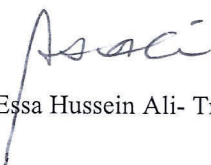 Essa Hussein Ali- Tr